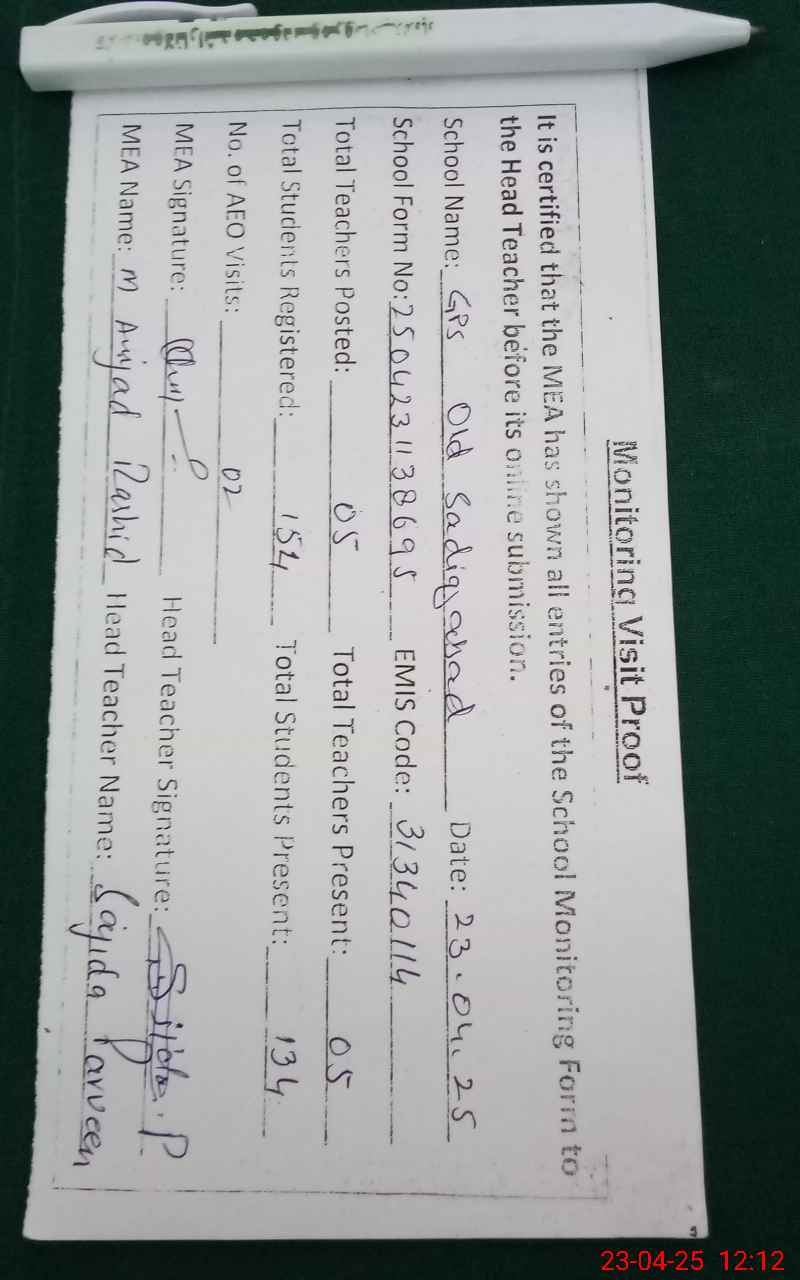 Monitoring Visit Proof
It is certified that the MEA has shown all entries of the School Monitoring Form to
the Head Teacher before its online submission.
School Name: GPS Old Sadiqabad Date: 23.04.25
School Form No: 2504231138695 EMIS Code: 31340114
Total Teachers Posted: 05 Total Teachers Present: 05
Total Students Registered: 154 Total Students Present: 134
No. of AEO Visits: 02
MEA Signature: Head Teacher Signature: Sajida. P
MEA Name: M Amjad Rashid Head Teacher Name: Sajida Parveen
23-04-25 12:12